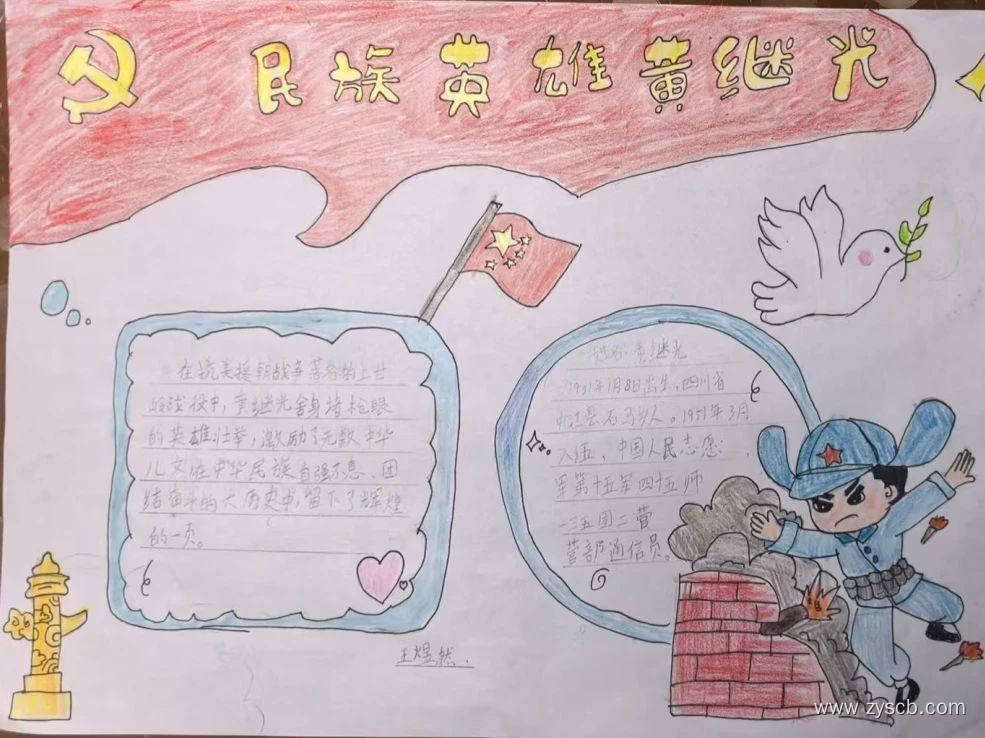 民族英雄黄继光
在抗美援朝战争著名的上甘
岭战役中，黄继光舍身堵枪眼
的英雄壮举，激励了无数中华
儿女在中华民族自强不息、团
结奋斗的大历史中，留下了辉煌
的一页。
姓名：黄继光
1931年1月8日出生，四川省
中江县石马乡人。1951年3月
入伍，中国人民志愿
军第十五军四十五师
一三五团二营
营部通信员。
王煜然
www.zyscb.com